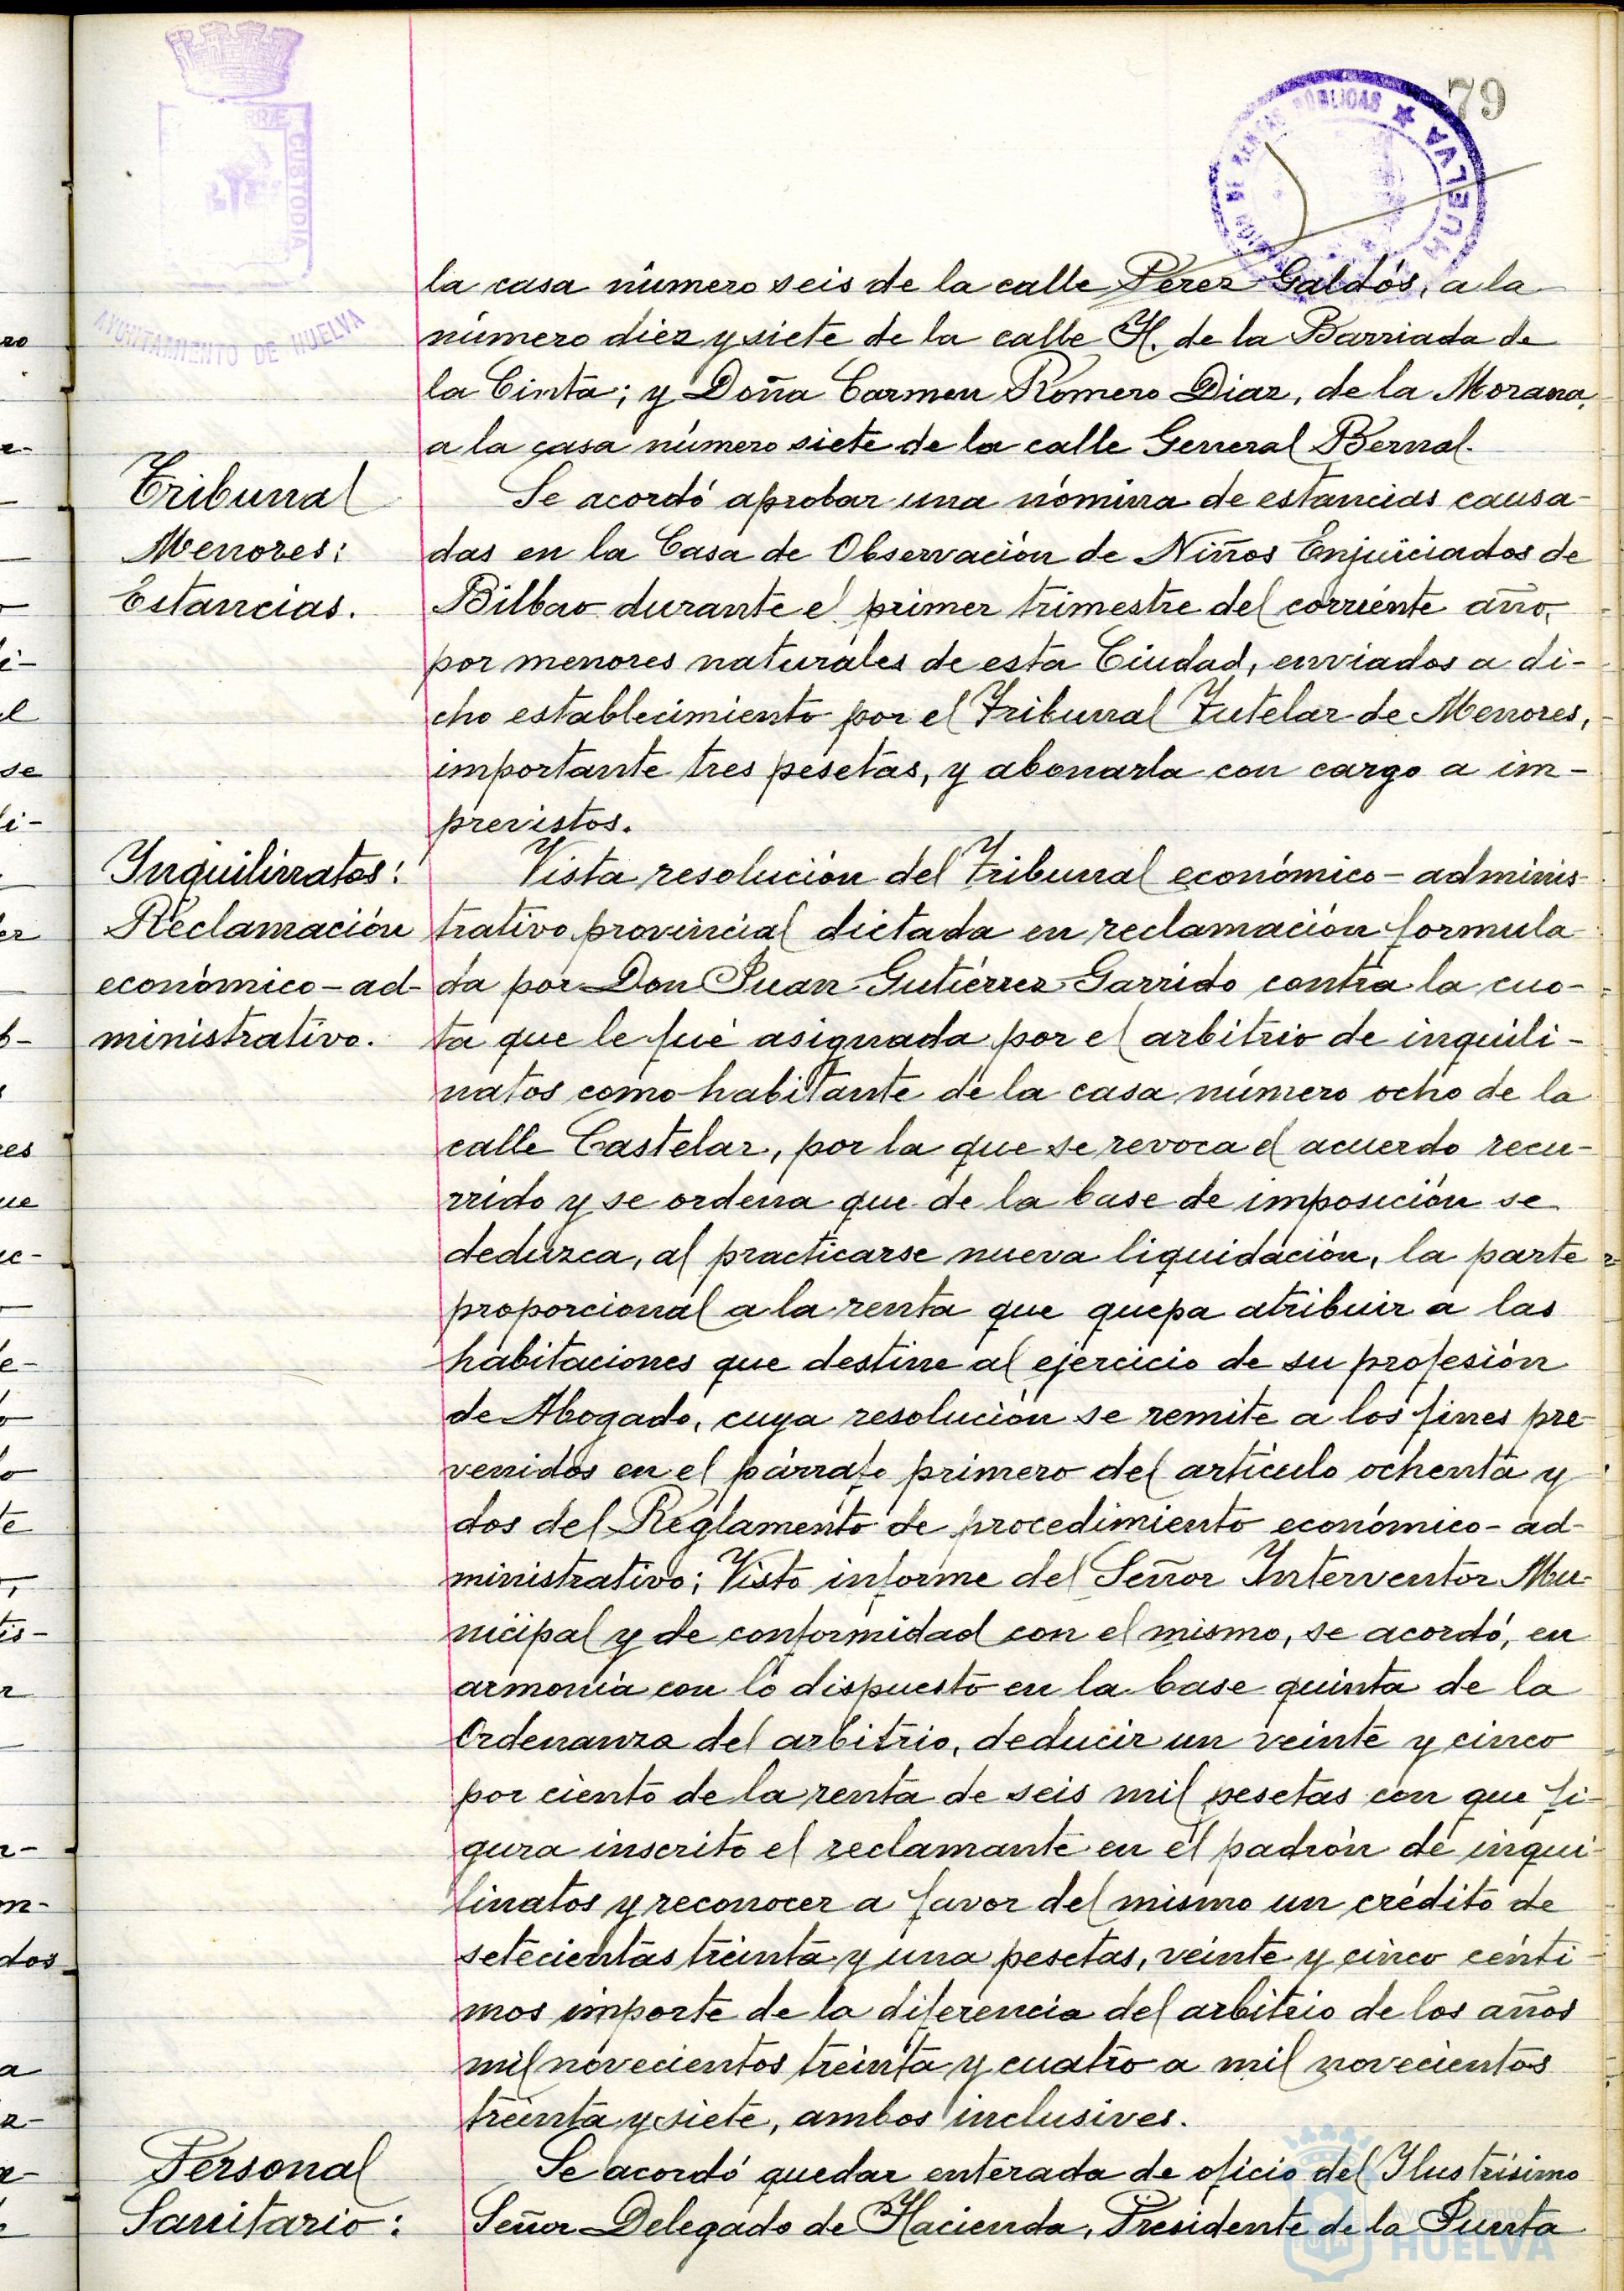 79
PORTUS MARIS ET TERRÆ CUSTODIA
AYUNTAMIENTO DE HUELVA
DE RENTAS PUBLICAS ★ HUELVA
la casa número seis de la calle Pérez Galdós, a la
número diez y siete de la calle H. de la Barriada de
la Cinta; y Doña Carmen Romero Diaz, de la Morana,
a la casa número siete de la calle General Bernal.
Tribunal
Menores:
Estancias.
Se acordó aprobar una nómina de estancias causa-
das en la Casa de Observación de Niños Enjuiciados de
Bilbao durante el primer trimestre del corriente año,
por menores naturales de esta Ciudad, enviados a di-
cho establecimiento por el Tribunal Tutelar de Menores,
importante tres pesetas, y abonarla con cargo a im-
previstos.
Inquilinatos:
Reclamación
económico-ad-
ministrativo.
Vista resolución del Tribunal económico-adminis-
trativo provincial dictada en reclamación formula
da por Don Juan Gutiérrez Garrido contra la cuo-
ta que le fué asignada por el arbitrio de inquili-
natos como habitante de la casa número ocho de la
calle Castelar, por la que se revoca el acuerdo recu-
rrido y se ordena que de la base de imposición se
deduzca, al practicarse nueva liquidación, la parte
proporcional a la renta que quepa atribuir a las
habitaciones que destine al ejercicio de su profesión
de Abogado, cuya resolución se remite a los fines pre-
venidos en el párrafo primero del artículo ochenta y
dos del Reglamento de procedimiento económico-ad-
ministrativo; Visto informe del Señor Interventor Mu-
nicipal y de conformidad con el mismo, se acordó, en
armonía con lo dispuesto en la base quinta de la
Ordenanza del arbitrio, deducir un veinte y cinco
por ciento de la renta de seis mil pesetas con que fi-
gura inscrito el reclamante en el padrón de inqui-
linatos y reconocer a favor del mismo un crédito de
setecientas treinta y una pesetas, veinte y cinco cénti-
mos importe de la diferencia del arbitrio de los años
mil novecientos treinta y cuatro a mil novecientos
treinta y siete, ambos inclusives.
Personal
Sanitario:
Se acordó quedar enterada de oficio del Ilustrísimo
Señor Delegado de Hacienda, Presidente de la Junta
Ayuntamiento de
HUELVA